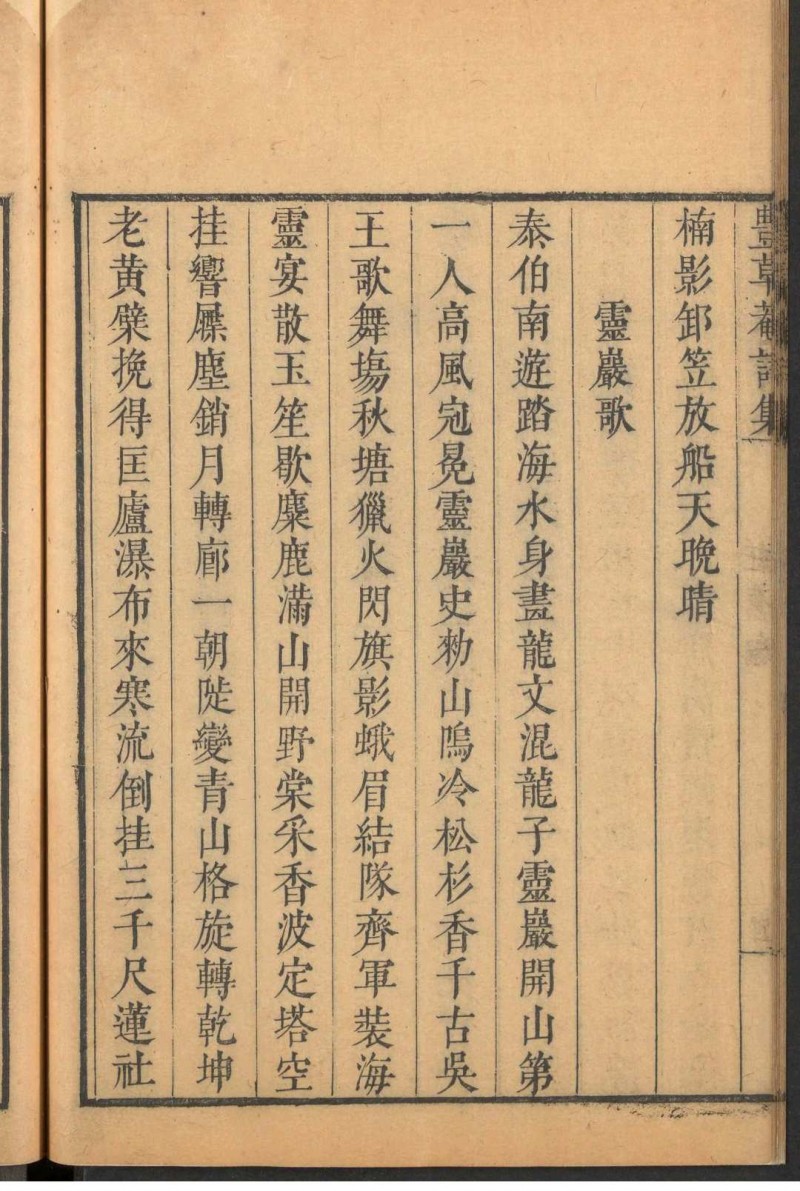 豐草菴詩集
楠影卸笠放船天晚晴
靈巖歌
泰伯南遊踏海水身畫龍文混龍子靈巖開山第
一人高風冠冕靈巖史勑山塢冷松杉香千古吳
王歌舞塲秋塘獵火閃旗影蛾眉結隊齊軍裝海
靈宴散玉笙歇麋鹿滿山開野棠采香波定塔空
挂響屧塵銷月轉廊一朝陡變青山格旋轉乾坤
老黃檗挽得匡廬瀑布來寒流倒挂三千尺蓮社